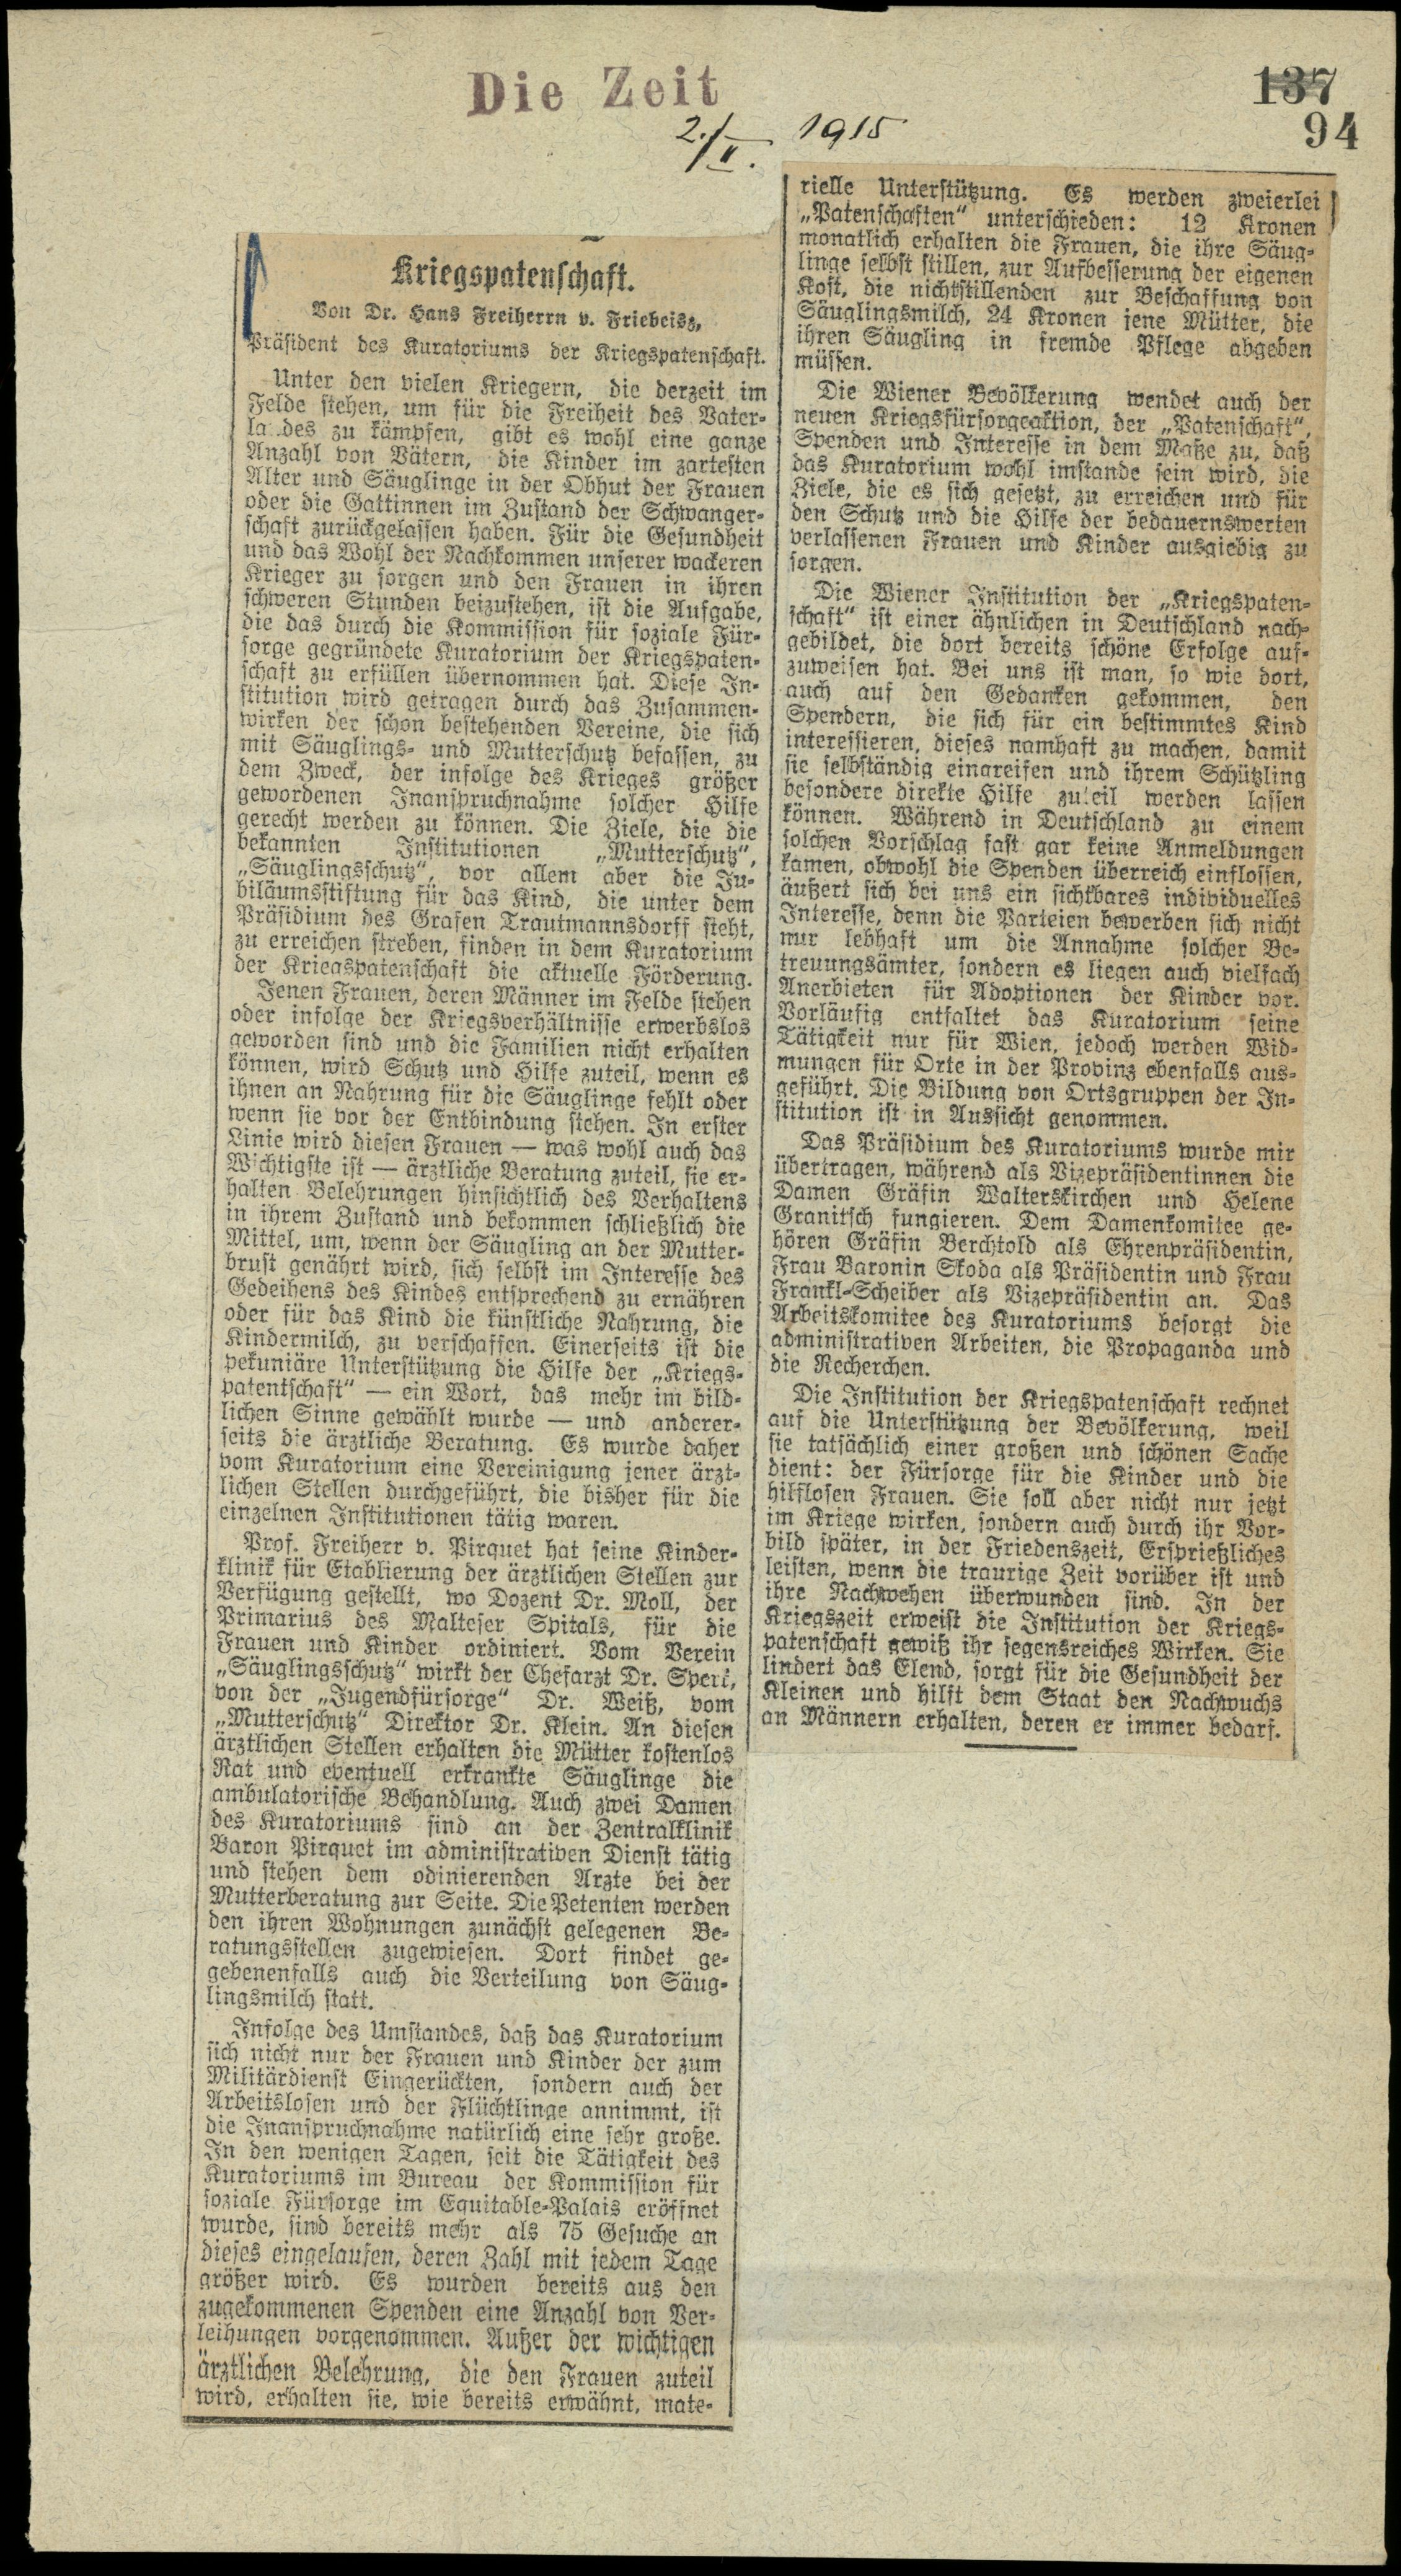 Die Zeit
137
94
2./II. 1915
Kriegspatenschaft.
Von Dr. Hans Freiherrn v. Friebeisz,
Präsident des Kuratoriums der Kriegspatenschaft.
Unter den vielen Kriegern, die derzeit im
Felde stehen, um für die Freiheit des Vater-
la des zu kämpfen, gibt es wohl eine ganze
Anzahl von Vätern, die Kinder im zartesten
Alter und Säuglinge in der Obhut der Frauen
oder die Gattinnen im Zustand der Schwanger-
schaft zurückgelassen haben. Für die Gesundheit
und das Wohl der Nachkommen unserer wackeren
Krieger zu sorgen und den Frauen in ihren
schweren Stunden beizustehen, ist die Aufgabe,
die das durch die Kommission für soziale Für-
sorge gegründete Kuratorium der Kriegspaten-
schaft zu erfüllen übernommen hat. Diese In-
stitution wird getragen durch das Zusammen-
wirken der schon bestehenden Vereine, die sich
mit Säuglings- und Mutterschutz befassen, zu
dem Zweck, der infolge des Krieges größer
gewordenen Inanspruchnahme solcher Hilfe
gerecht werden zu können. Die Ziele, die die
bekannten Institutionen „Mutterschutz",
„Säuglingsschutz", vor allem aber die Ju-
biläumsstiftung für das Kind, die unter dem
Präsidium des Grafen Trautmannsdorff steht,
zu erreichen streben, finden in dem Kuratorium
der Kriegspatenschaft die aktuelle Förderung.
Jenen Frauen, deren Männer im Felde stehen
oder infolge der Kriegsverhältnisse erwerbslos
geworden sind und die Familien nicht erhalten
können, wird Schutz und Hilfe zuteil, wenn es
ihnen an Nahrung für die Säuglinge fehlt oder
wenn sie vor der Entbindung stehen. In erster
Linie wird diesen Frauen — was wohl auch das
Wichtigste ist — ärztliche Beratung zuteil, sie er-
halten Belehrungen hinsichtlich des Verhaltens
in ihrem Zustand und bekommen schließlich die
Mittel, um, wenn der Säugling an der Mutter-
brust genährt wird, sich selbst im Interesse des
Gedeihens des Kindes entsprechend zu ernähren
oder für das Kind die künstliche Nahrung, die
Kindermilch, zu verschaffen. Einerseits ist die
pekuniäre Unterstützung die Hilfe der „Kriegs-
patentschaft" — ein Wort, das mehr im bild-
lichen Sinne gewählt wurde — und anderer-
seits die ärztliche Beratung. Es wurde daher
vom Kuratorium eine Vereinigung jener ärzt-
lichen Stellen durchgeführt, die bisher für die
einzelnen Institutionen tätig waren.
Prof. Freiherr v. Pirquet hat seine Kinder-
klinik für Etablierung der ärztlichen Stellen zur
Verfügung gestellt, wo Dozent Dr. Moll, der
Primarius des Malteser Spitals, für die
Frauen und Kinder ordiniert. Vom Verein
„Säuglingsschutz" wirkt der Chefarzt Dr. Sperk,
von der „Jugendfürsorge" Dr. Weiß, vom
„Mutterschutz" Direktor Dr. Klein. An diesen
ärztlichen Stellen erhalten die Mütter kostenlos
Rat und eventuell erkrankte Säuglinge die
ambulatorische Behandlung. Auch zwei Damen
des Kuratoriums sind an der Zentralklinik
Baron Pirquet im administrativen Dienst tätig
und stehen dem odinierenden Arzte bei der
Mutterberatung zur Seite. Die Petenten werden
den ihren Wohnungen zunächst gelegenen Be-
ratungsstellen zugewiesen. Dort findet ge-
gebenenfalls auch die Verteilung von Säug-
lingsmilch statt.
Infolge des Umstandes, daß das Kuratorium
sich nicht nur der Frauen und Kinder der zum
Militärdienst Eingerückten, sondern auch der
Arbeitslosen und der Flüchtlinge annimmt, ist
die Inanspruchnahme natürlich eine sehr große.
In den wenigen Tagen, seit die Tätigkeit des
Kuratoriums im Bureau der Kommission für
soziale Fürsorge im Equitable-Palais eröffnet
wurde, sind bereits mehr als 75 Gesuche an
dieses eingelaufen, deren Zahl mit jedem Tage
größer wird. Es wurden bereits aus den
zugekommenen Spenden eine Anzahl von Ver-
leihungen vorgenommen. Außer der wichtigen
ärztlichen Belehrung, die den Frauen zuteil
wird, erhalten sie, wie bereits erwähnt, mate-
rielle Unterstützung. Es werden zweierlei
„Patenschaften" unterschieden: 12 Kronen
monatlich erhalten die Frauen, die ihre Säug-
linge selbst stillen, zur Aufbesserung der eigenen
Kost, die nichtstillenden zur Beschaffung von
Säuglingsmilch, 24 Kronen jene Mütter, die
ihren Säugling in fremde Pflege abgeben
müssen.
Die Wiener Bevölkerung wendet auch der
neuen Kriegsfürsorgeaktion, der „Patenschaft",
Spenden und Interesse in dem Maße zu, daß
das Kuratorium wohl imstande sein wird, die
Ziele, die es sich gesetzt, zu erreichen und für
den Schutz und die Hilfe der bedauernswerten
verlassenen Frauen und Kinder ausgiebig zu
sorgen.
Die Wiener Institution der „Kriegspaten-
schaft" ist einer ähnlichen in Deutschland nach-
gebildet, die dort bereits schöne Erfolge auf-
zuweisen hat. Bei uns ist man, so wie dort,
auch auf den Gedanken gekommen, den
Spendern, die sich für ein bestimmtes Kind
interessieren, dieses namhaft zu machen, damit
sie selbständig eingreifen und ihrem Schützling
besondere direkte Hilfe zuteil werden lassen
können. Während in Deutschland zu einem
solchen Vorschlag fast gar keine Anmeldungen
kamen, obwohl die Spenden überreich einflossen,
äußert sich bei uns ein sichtbares individuelles
Interesse, denn die Parteien bewerben sich nicht
nur lebhaft um die Annahme solcher Be-
treuungsämter, sondern es liegen auch vielfach
Anerbieten für Adoptionen der Kinder vor.
Vorläufig entfaltet das Kuratorium seine
Tätigkeit nur für Wien, jedoch werden Wid-
mungen für Orte in der Provinz ebenfalls aus-
geführt. Die Bildung von Ortsgruppen der In-
stitution ist in Aussicht genommen.
Das Präsidium des Kuratoriums wurde mir
übertragen, während als Vizepräsidentinnen die
Damen Gräfin Walterskirchen und Helene
Granitsch fungieren. Dem Damenkomitee ge-
hören Gräfin Berchtold als Ehrenpräsidentin,
Frau Baronin Skoda als Präsidentin und Frau
Frankl-Scheiber als Vizepräsidentin an. Das
Arbeitskomitee des Kuratoriums besorgt die
administrativen Arbeiten, die Propaganda und
die Recherchen.
Die Institution der Kriegspatenschaft rechnet
auf die Unterstützung der Bevölkerung, weil
sie tatsächlich einer großen und schönen Sache
dient: der Fürsorge für die Kinder und die
hilflosen Frauen. Sie soll aber nicht nur jetzt
im Kriege wirken, sondern auch durch ihr Vor-
bild später, in der Friedenszeit, Ersprießliches
leisten, wenn die traurige Zeit vorüber ist und
ihre Nachwehen überwunden sind. In der
Kriegszeit erweist die Institution der Kriegs-
patenschaft gewiß ihr segensreiches Wirken. Sie
lindert das Elend, sorgt für die Gesundheit der
Kleinen und hilft dem Staat den Nachwuchs
an Männern erhalten, deren er immer bedarf.